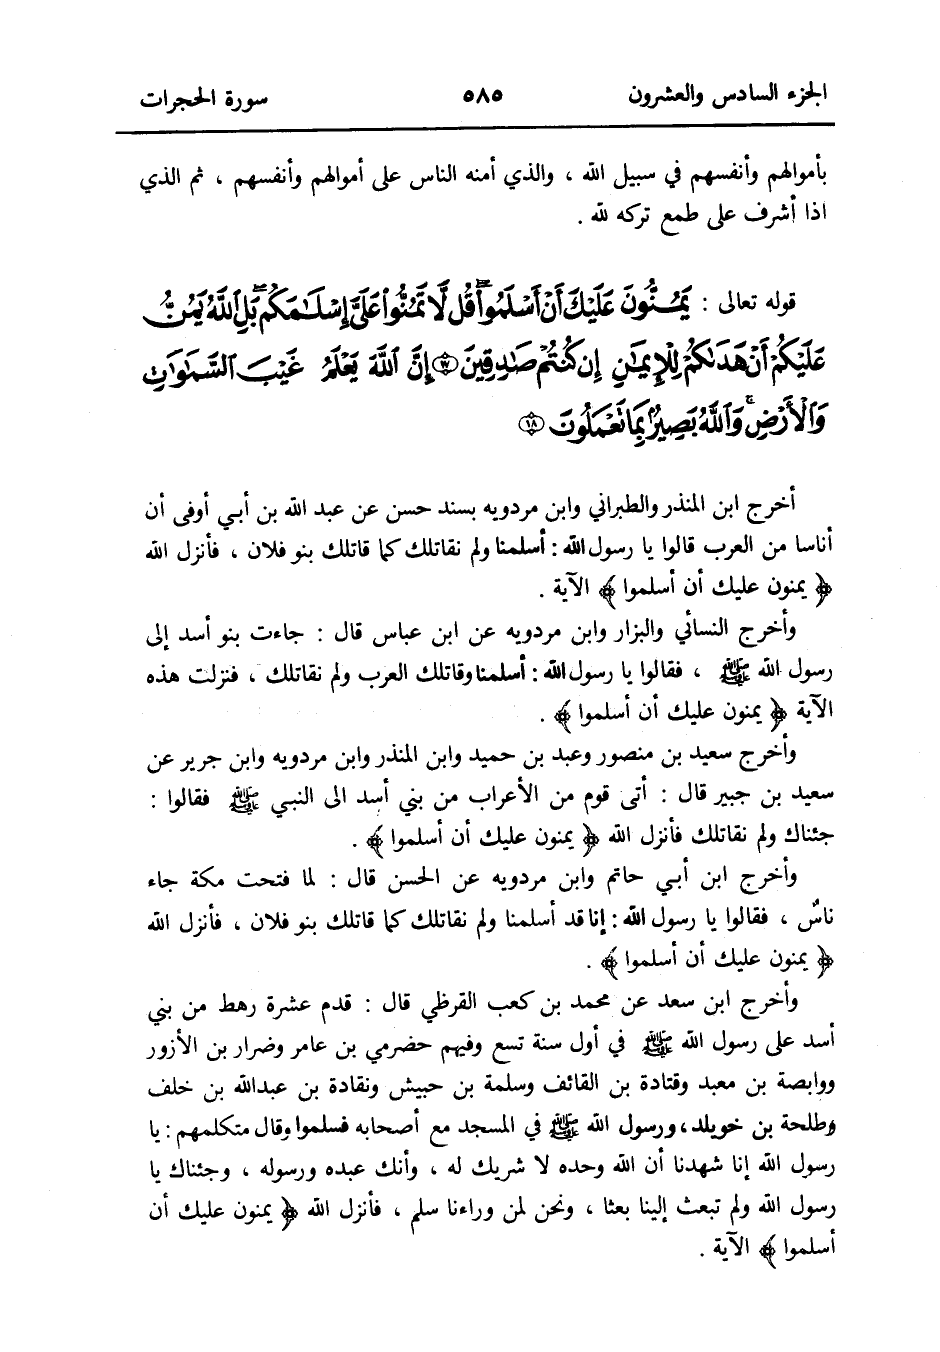 الجزء السادس والعشرون ٥٨٥ سورة الحجرات
بأموالهم وأنفسهم في سبيل الله ، والذي أمنه الناس على أموالهم وأنفسهم ، ثم الذي
اذا أشرف على طمع تركه لله .
قوله تعالى : يَمُنُّونَ عَلَيْكَ أَنْ أَسْلَمُوا۟ ۖ قُل لَّا تَمُنُّوا۟ عَلَىَّ إِسْلَـٰمَكُم ۖ بَلِ ٱللَّهُ يَمُنُّ
عَلَيْكُمْ أَنْ هَدَىٰكُمْ لِلْإِيمَـٰنِ إِن كُنتُمْ صَـٰدِقِينَ ۝١٧ إِنَّ ٱللَّهَ يَعْلَمُ غَيْبَ ٱلسَّمَـٰوَٰتِ
وَٱلْأَرْضِ ۚ وَٱللَّهُ بَصِيرٌۢ بِمَا تَعْمَلُونَ ۝١٨
أخرج ابن المنذر والطبراني وابن مردويه بسند حسن عن عبد الله بن أبي أوفى أن
أناسا من العرب قالوا يا رسول الله : أسلمنا ولم نقاتلك كما قاتلك بنو فلان ، فأنزل الله
﴿ يمنون عليك أن أسلموا ﴾ الآية .
وأخرج النسائي والبزار وابن مردويه عن ابن عباس قال : جاءت بنو أسد إلى
رسول الله ﷺ ، فقالوا يا رسول الله : أسلمنا وقاتلك العرب ولم نقاتلك ، فنزلت هذه
الآية ﴿ يمنون عليك أن أسلموا ﴾ .
وأخرج سعيد بن منصور وعبد بن حميد وابن المنذر وابن مردويه وابن جرير عن
سعيد بن جبير قال : أتى قوم من الأعراب من بني أسد الى النبي ﷺ فقالوا :
جئناك ولم نقاتلك فأنزل الله ﴿ يمنون عليك أن أسلموا ﴾ .
وأخرج ابن أبي حاتم وابن مردويه عن الحسن قال : لما فتحت مكة جاء
ناسٌ ، فقالوا يا رسول الله : إنا قد أسلمنا ولم نقاتلك كما قاتلك بنو فلان ، فأنزل الله
﴿ يمنون عليك أن أسلموا ﴾ .
وأخرج ابن سعد عن محمد بن كعب القرظي قال : قدم عشرة رهط من بني
أسد على رسول الله ﷺ في أول سنة تسع وفيهم حضرمي بن عامر وضرار بن الأزور
ووابصة بن معبد وقتادة بن القائف وسلمة بن حبيش ونقادة بن عبدالله بن خلف
وطلحة بن خويلد، ورسول الله ﷺ في المسجد مع أصحابه فسلموا وقال متكلمهم : يا
رسول الله إنا شهدنا أن الله وحده لا شريك له ، وأنك عبده ورسوله ، وجئناك يا
رسول الله ولم تبعث إلينا بعثا ، ونحن لمن وراءنا سلم ، فأنزل الله ﴿ يمنون عليك أن
أسلموا ﴾ الآية .